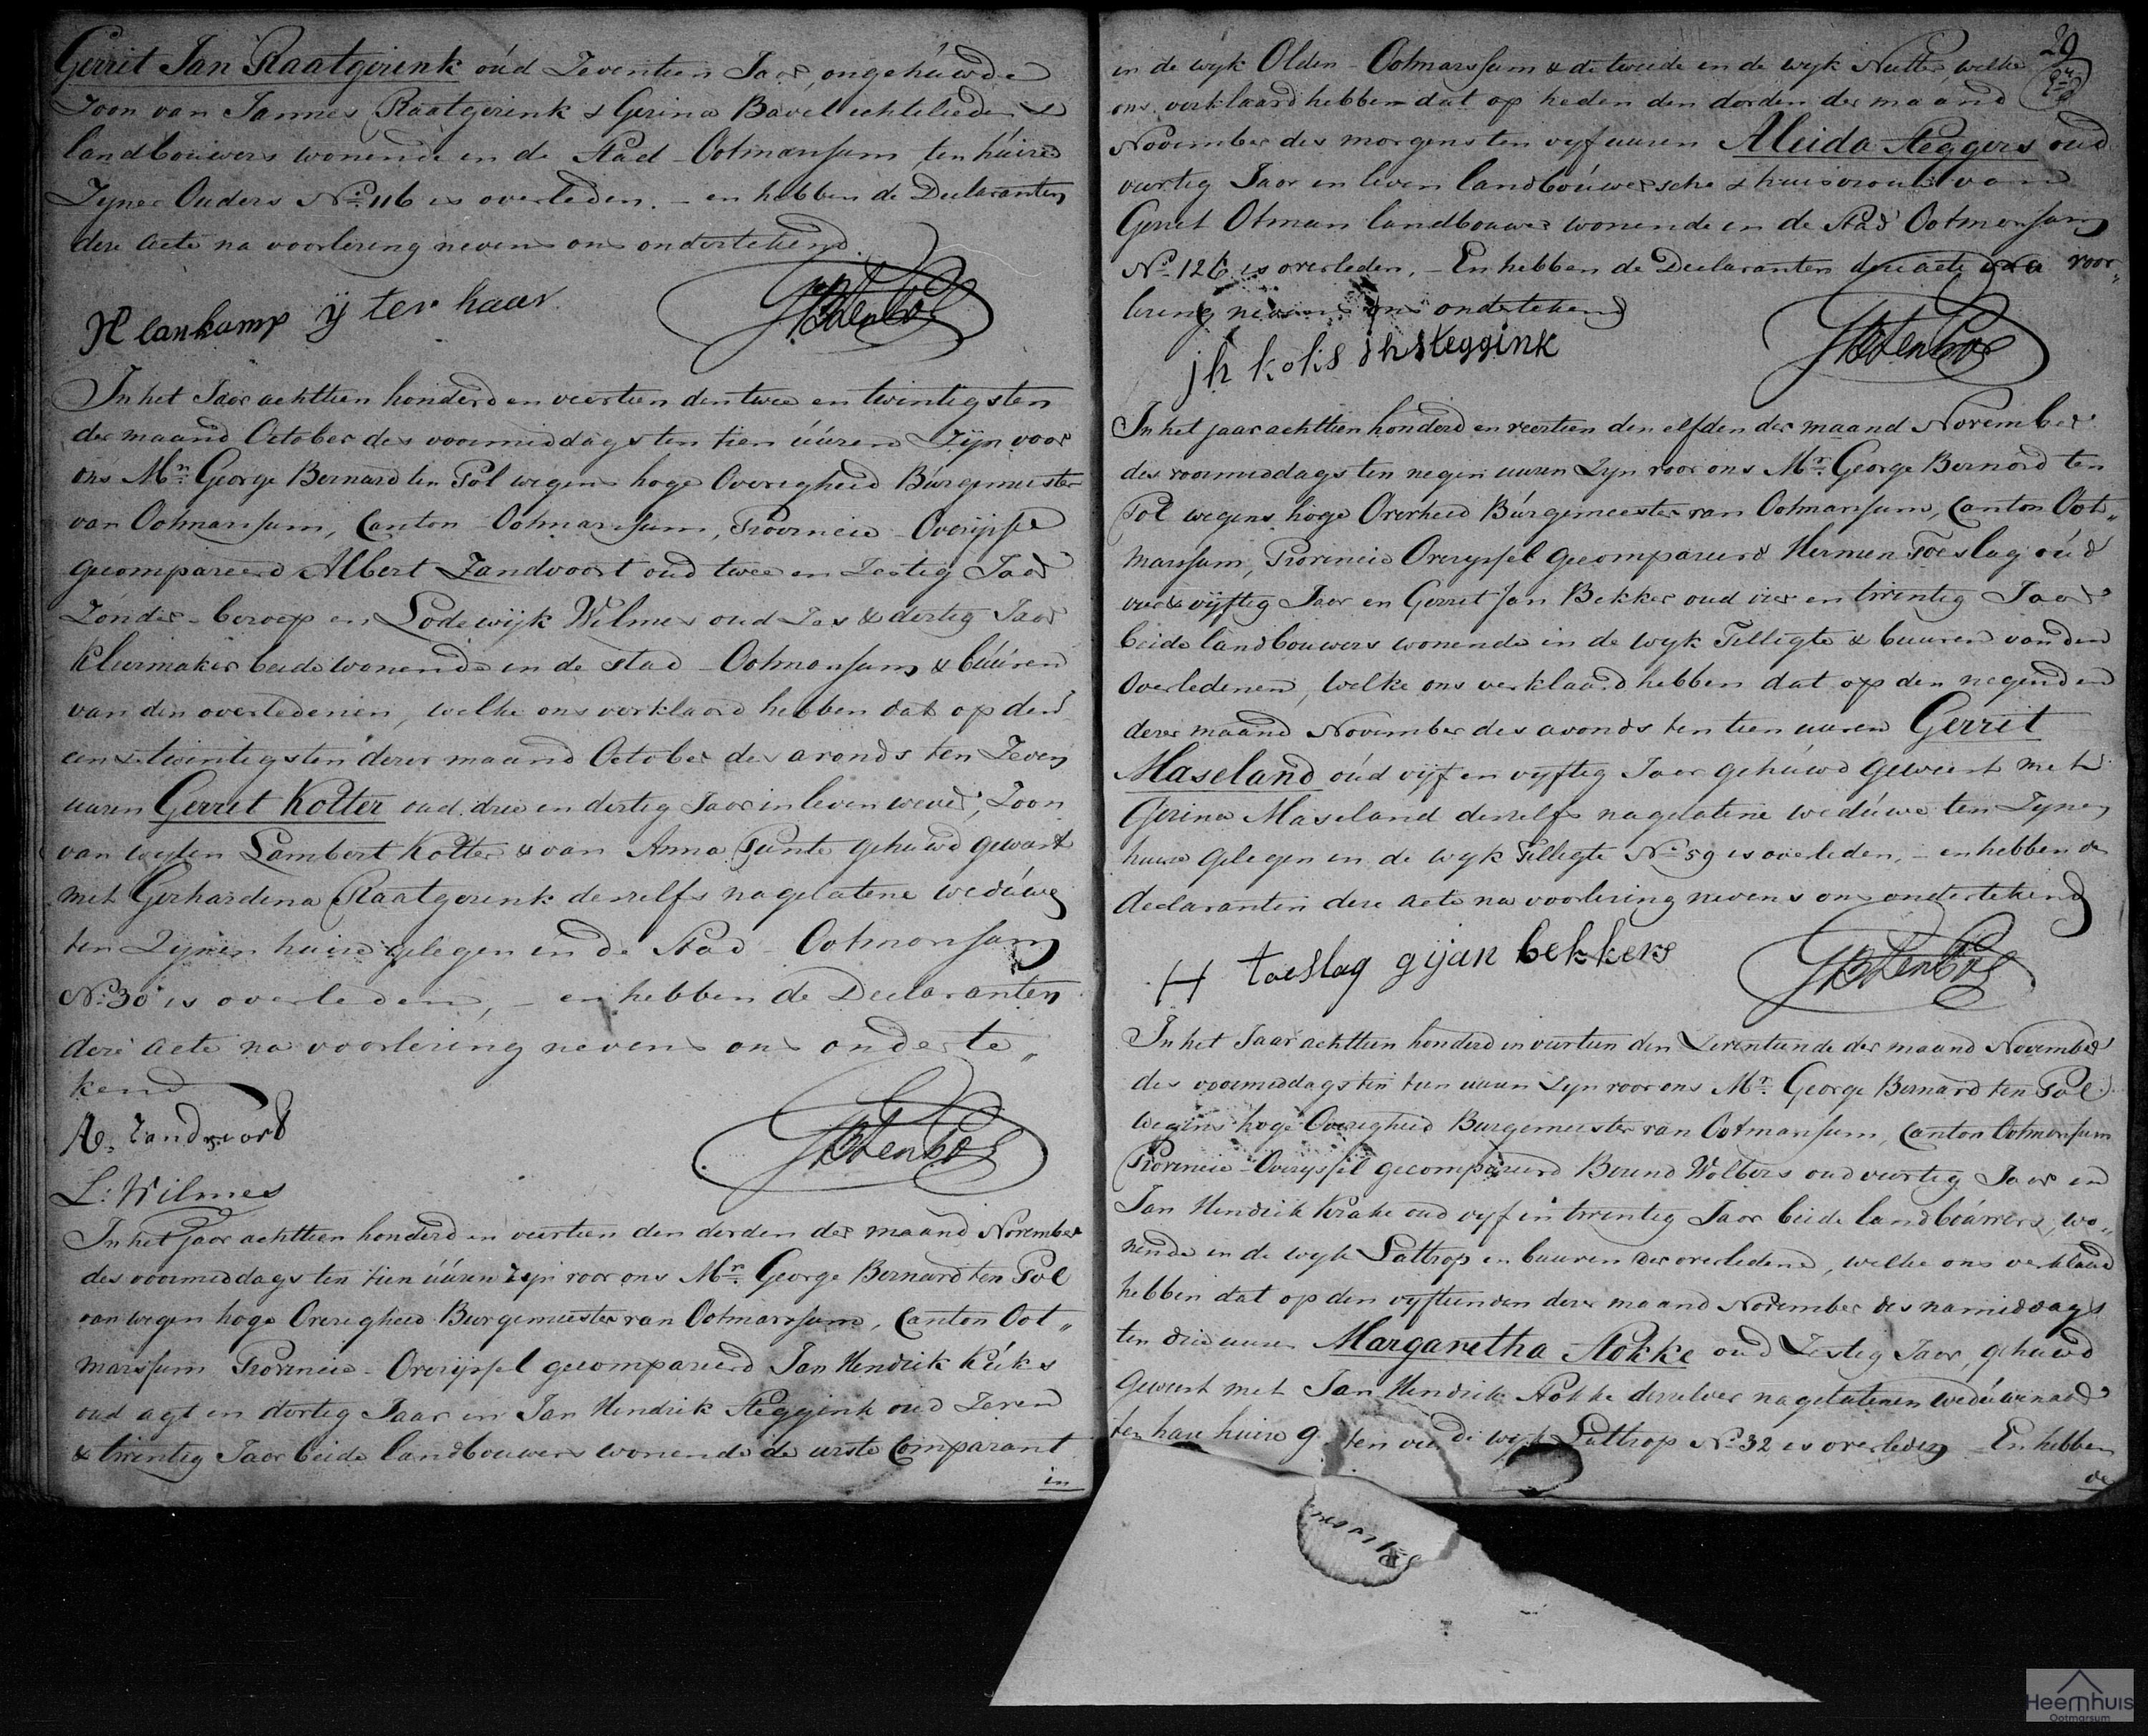 Gerrit Jan Raatgerink oud Zeventien Jaar, ongehuwde
Zoon van Jannes Raatgerink & Gerina Bavel echtelieden &
landbouwers wonende in de Stad Ootmarssum ten huise
Zyner Ouders No. 116 is overleden. – en hebben de Declaranten
dese acte na voorlesing nevens ons ondertekend
H lankamp
ij ter haar
GBtenPol
In het Jaar achttien honderd en veertien den twee en twintigsten
der maand October des voormiddags ten tien uuren Zyn voor
ons Mr. George Bernard ten Pol wegens hoge Overigheid Burgemeester
van Ootmarssum, Canton Ootmarssum, Provincie Overijssel
gecompareerd Albert Zandvoort oud twee en Zestig Jaar
Zonder beroep en Lodewijk Wilmes oud Zes & dertig Jaar
kleermaker beide wonende in de stad Ootmarssum & buuren
van den overledenen, welke ons verklaard hebben dat op den
een & twintigsten deser maand October des avonds ten Zeven
uuren Gerret Kotter oud drie en dertig Jaar in leven wever, Zoon
van wylen Lambert Kotter & van Anna Punte gehuwd geweest
met Gerhardina Raatgerink deszelfs nagelatene weduwe
ten Zynen huise gelegen in de Stad Ootmarssum
No. 30 is overleden, – en hebben de Declaranten
dese acte na voorlesing nevens ons onderte„
kend
A. Zandvoort
GBtenPol
L: Wilmes
In het jaar achttien honderd en veertien den derden der maand November
des voormiddags ten tien uuren zyn voor ons Mr. George Bernard ten Pol
van wegen hoge Overigheid Burgemeester van Ootmarssum, Canton Oot„
marssum Provincie Overijssel gecompareerd Jan Hendrik Kuks
oud agt en dertig Jaar en Jan Hendrik Steggink oud Zeven
& twintig Jaar beide landbouwers wonende de eerste Comparant
in
29
in de wyk Olden Ootmarssum & de tweede in de wyk Nutter welke
ons verklaard hebben dat op heden den derden der maand
November des morgens ten vyf uuren Aleida Steggers oud
veertig Jaar in leven landbouwersche & huisvrouw van
Gerret Otman landbouwer wonende in de Stad Ootmarssum
No. 126 is overleden. – En hebben de Declaranten dese acte na voor„
lesing nevens ons ondertekend
jh koks
jh steggink
GBtenPol
In het jaar achttien honderd en veertien den elfden der maand November
des voormiddags ten negen uuren Zyn voor ons Mr. George Bernard ten
Pol wegens hoge Overheid Burgemeester van Ootmarssum, Canton Oot„
marssum, Provincie Overyssel gecompareerd Hermen Toeslag oud
vier & vyftig Jaar en Gerret Jan Bekker oud vier en twintig Jaar
beide landbouwers wonende in de wyk Tilligte & buuren van den
Overledenen, welke ons verklaard hebben dat op den negenden
deser maand November des avonds ten tien uuren Gerrit
Maseland oud vyf en vyftig Jaar gehuwd geweest met
Gerina Maseland deszelfs nagelatene weduwe ten Zynen
huise gelegen in de wyk Tilligte No. 59 is overleden, – en hebben de
declaranten dese acte na voorlesing nevens ons ondertekend
H toeslag
g ijan bekkers
GBtenPol
In het Jaar achttien honderd en veertien den Zeventiende der maand November
des voormiddags ten tien uuren Zyn voor ons Mr. George Bernard ten Pol
wegens hoge Overigheid Burgemeester van Ootmarssum, Canton Ootmarssum
Provincie Overyssel gecompareerd Berend Wolbers oud veertig Jaar en
Jan Hendrik Krake oud vyf en twintig Jaar beide landbouwers, wo„
nende in de wyk Lattrop en buuren der overledene, welke ons verklaard
hebben dat op den vyftienden deser maand November des namiddags
ten drie uuren Margaretha Stokke oud Zestig Jaar, gehuwd
geweest met Jan Hendrik Stokke derzelver nagelatenen weduwenaar
ten hare huise g ten de wyk Lattrop No. 32 is overleden En hebben
de
Heemhuis
Ootmarsum